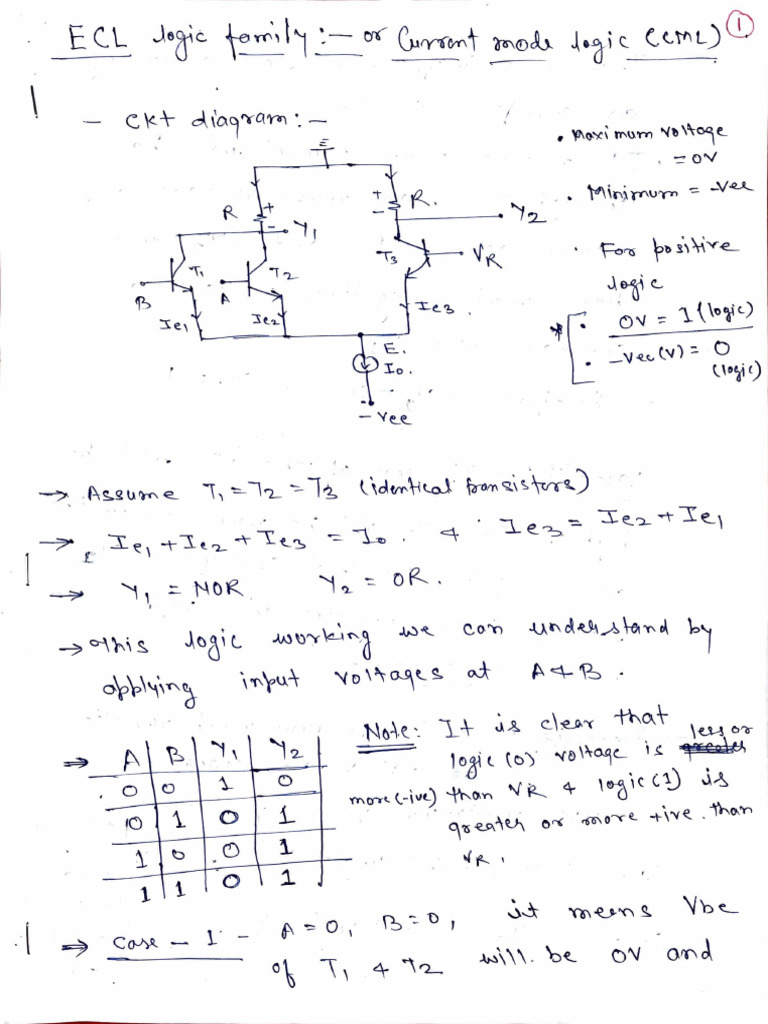 ECL logic family :- or Current mode logic (CML) 1
- ckt diagram :-
• Maximum voltage
= 0V
• Minimum = -Vee
• For positive
logic
* • 0V = 1 (logic)
• -Vee(V) = 0
(logic)
E
+ R. Y2
-
R + Y1
-
T1 T2 T3 VR
B A
Ie1 Ie2 Ie3
E.
I0.
-Vee
→ Assume T1 = T2 = T3 (identical transistors)
→ Ie1 + Ie2 + Ie3 = I0. & Ie3 = Ie2 + Ie1
→ Y1 = NOR Y2 = OR.
→ This logic working we can understand by
applying input voltages at A & B.
⇒ A B Y1 Y2
0 0 1 0
0 1 0 1
1 0 0 1
1 1 0 1
Note: It is clear that
logic (0) voltage is less or
more (-ive) than VR & logic (1) is
greater or more +ive than
VR.
⇒ Case - 1 - A = 0, B = 0, it meens Vbe
of T1 & T2 will be 0V and